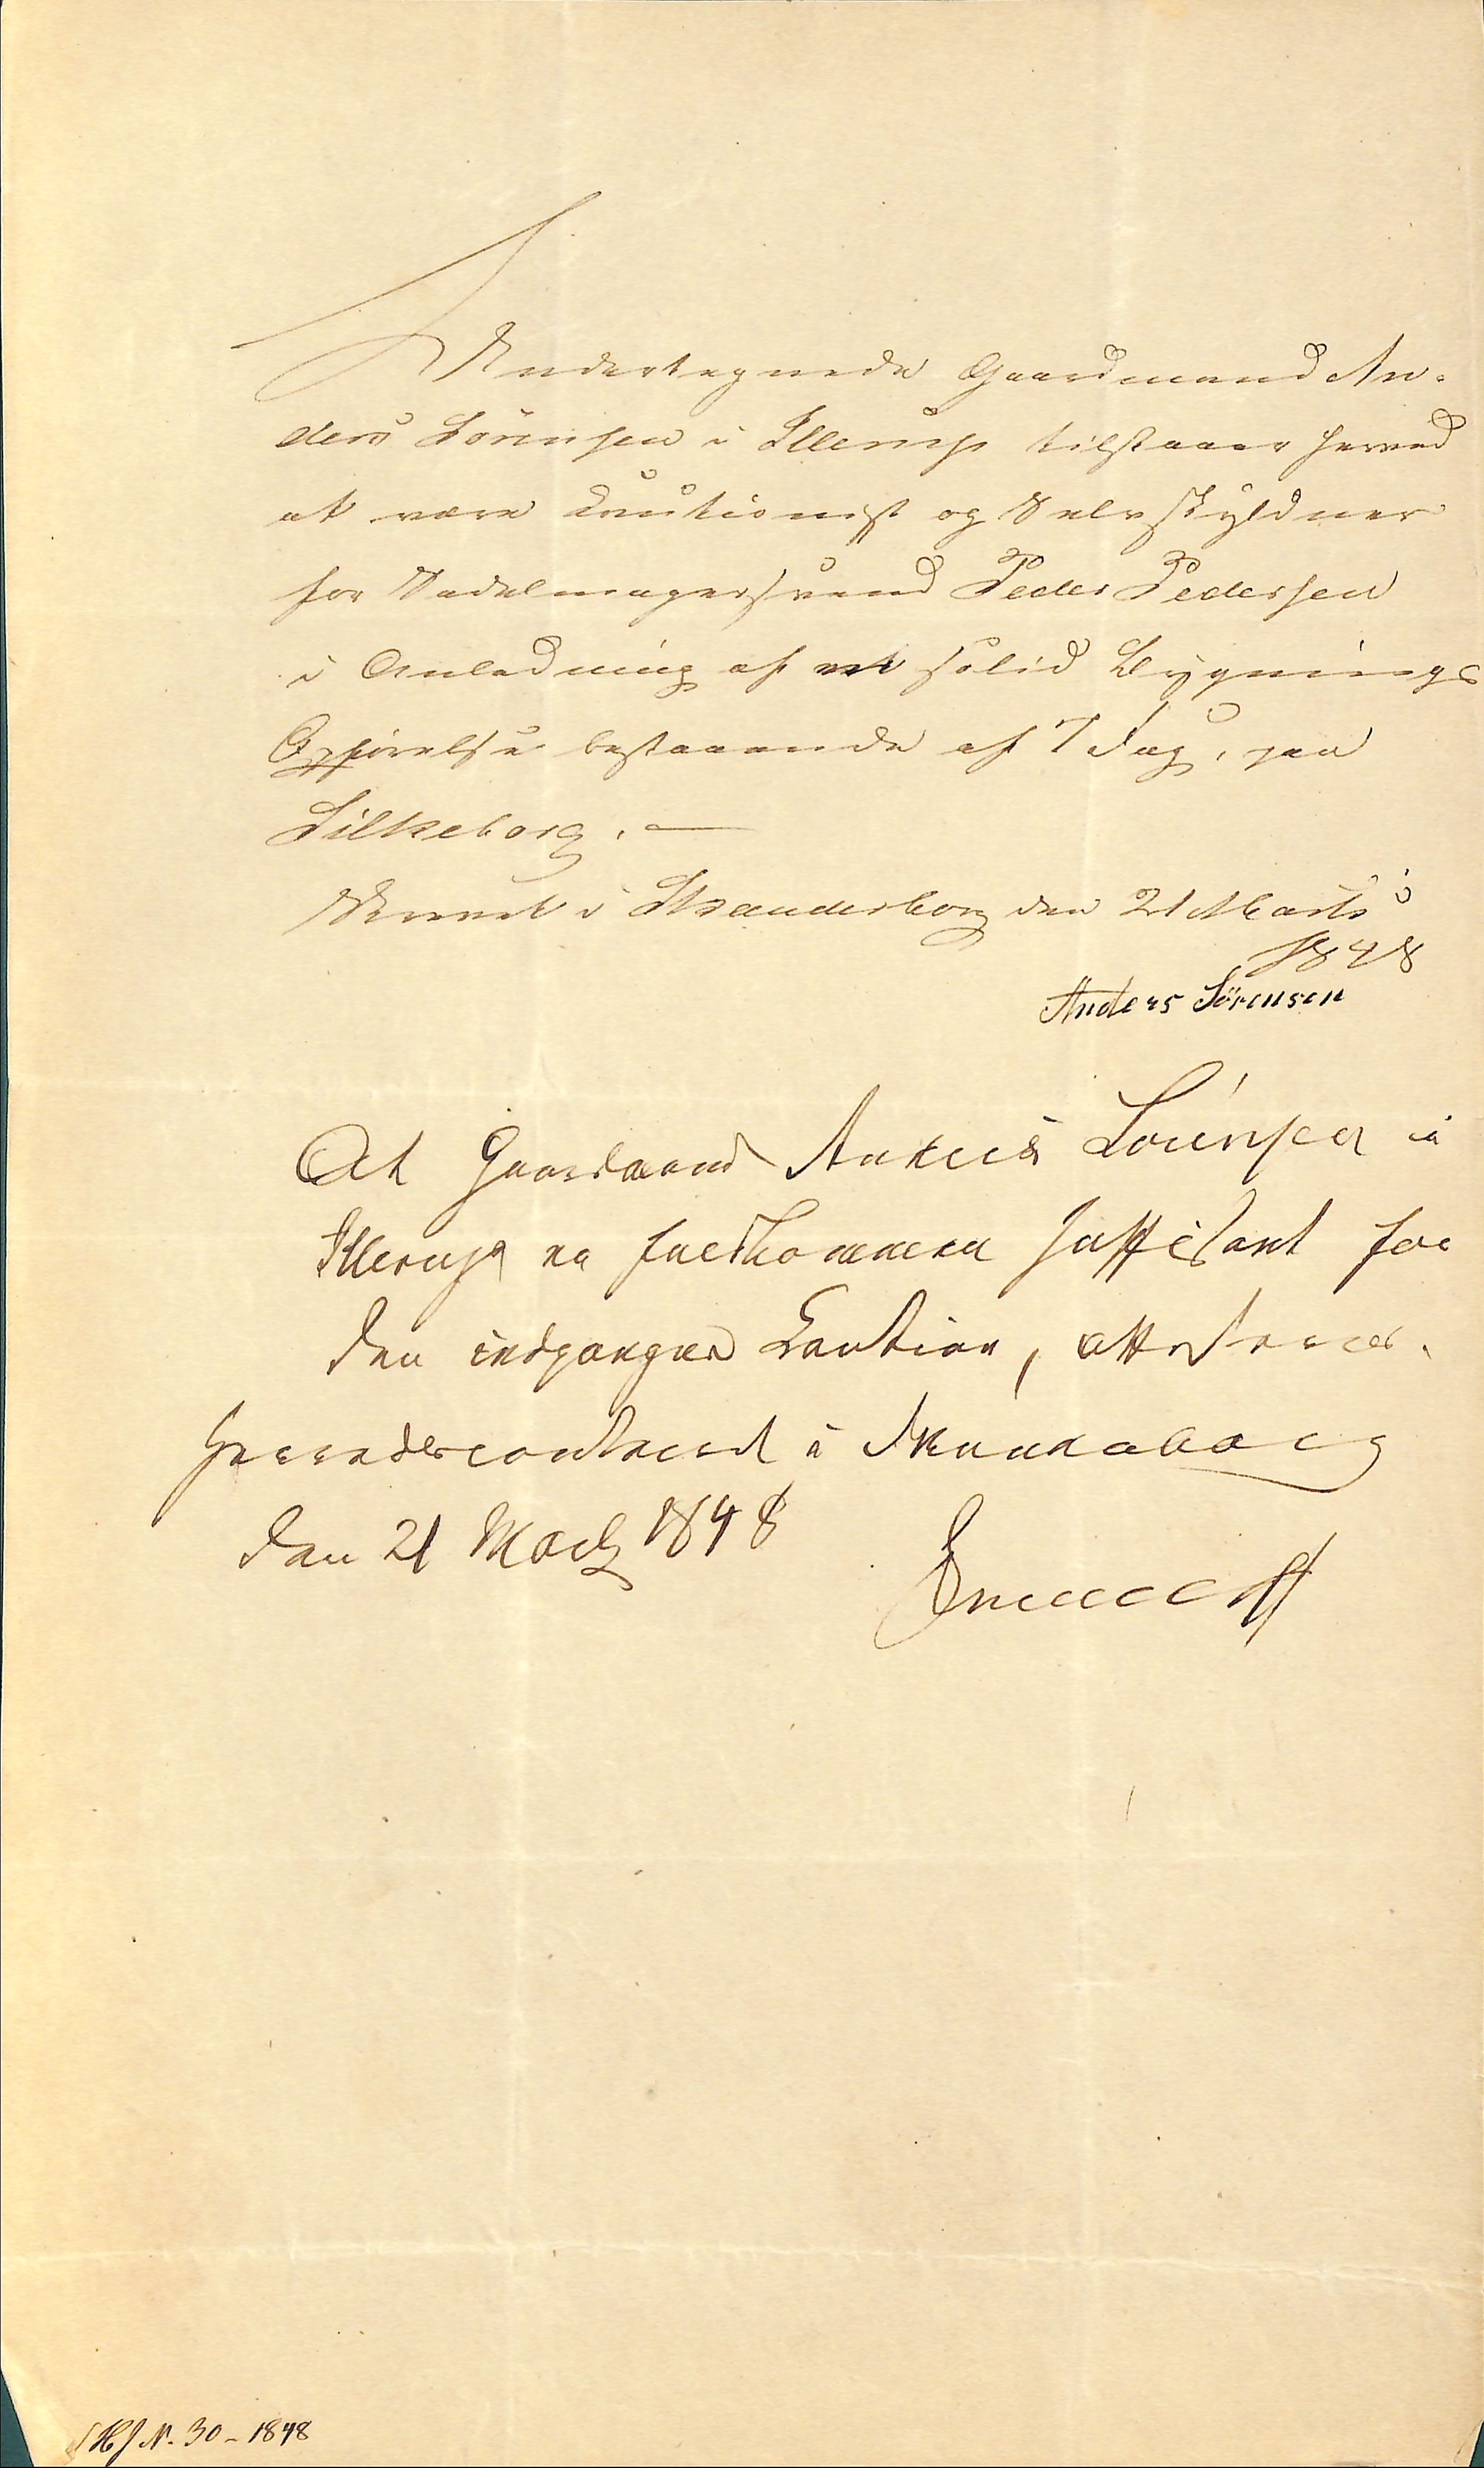 Undertegnede Gaardmand An-
ders Sörensen i Illerup tilstaaer herved
at være Cautionist og Selvskyldner
for Sadelmagersvend Peder Pedersen
i Anledning af solid Bygnings
Opførelse bestaaende af 7 Fag, paa
Silkeborg. —
Skrevet i Skanderborg den 21 Marts
1848
Anders Sörensen
At Gaardmand Anders Sörensen i
Illerup er fuldkommen suffisant for
den indgangne Caution, attesteres.
Herredscontoiret i Skanderborg
den 21 Marts 1848
N. 30 - 1848